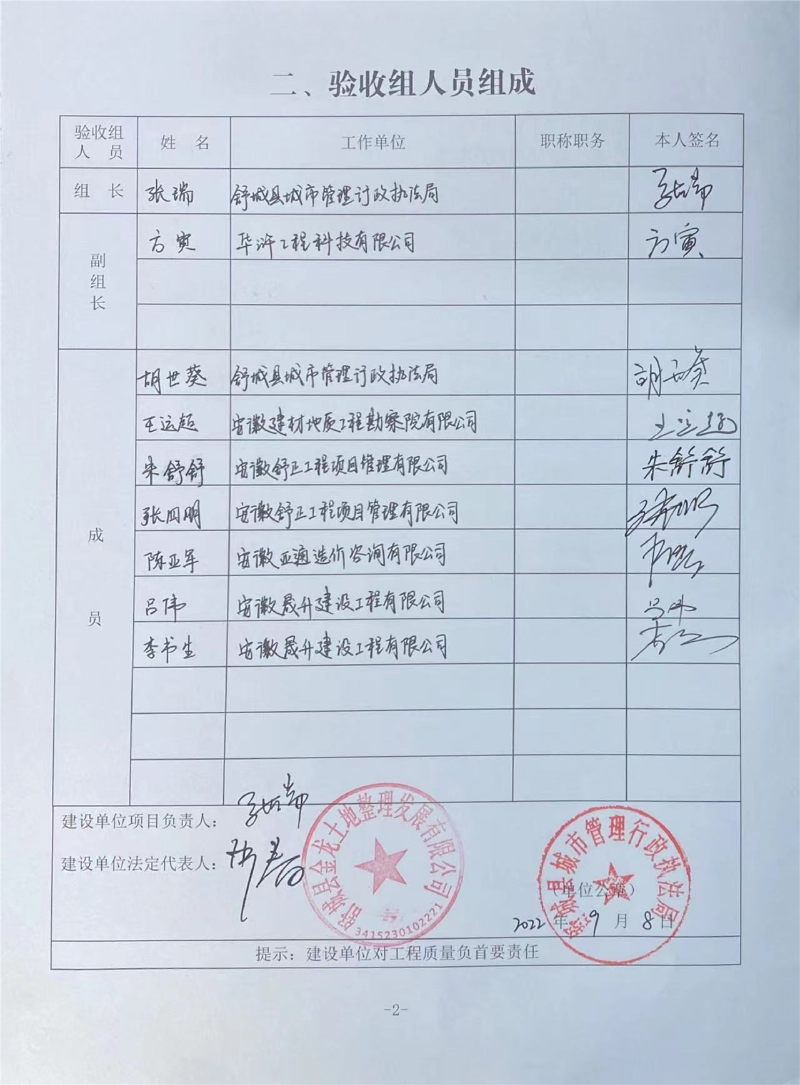 二、验收组人员组成
验收组人员 姓 名 工作单位 职称职务 本人签名
组 长 张瑞 舒城县城市管理行政执法局 张瑞
副组长 方寅 华浒工程科技有限公司 方寅
成员 胡世葵 舒城县城市管理行政执法局 胡世葵
王运超 安徽建材地质工程勘察院有限公司 王运超
朱舒舒 安徽舒正工程项目管理有限公司 朱舒舒
张四明 安徽舒正工程项目管理有限公司
陈亚军 安徽亚通造价咨询有限公司
吕伟 安徽晟升建设工程有限公司 吕伟
李书生 安徽晟升建设工程有限公司
建设单位项目负责人： 张瑞
建设单位法定代表人：
舒城县金龙土地整理发展有限公司
3415230102221
舒城县城市管理行政执法局
（单位公章）
2022年9月8日
提示：建设单位对工程质量负首要责任
-2-